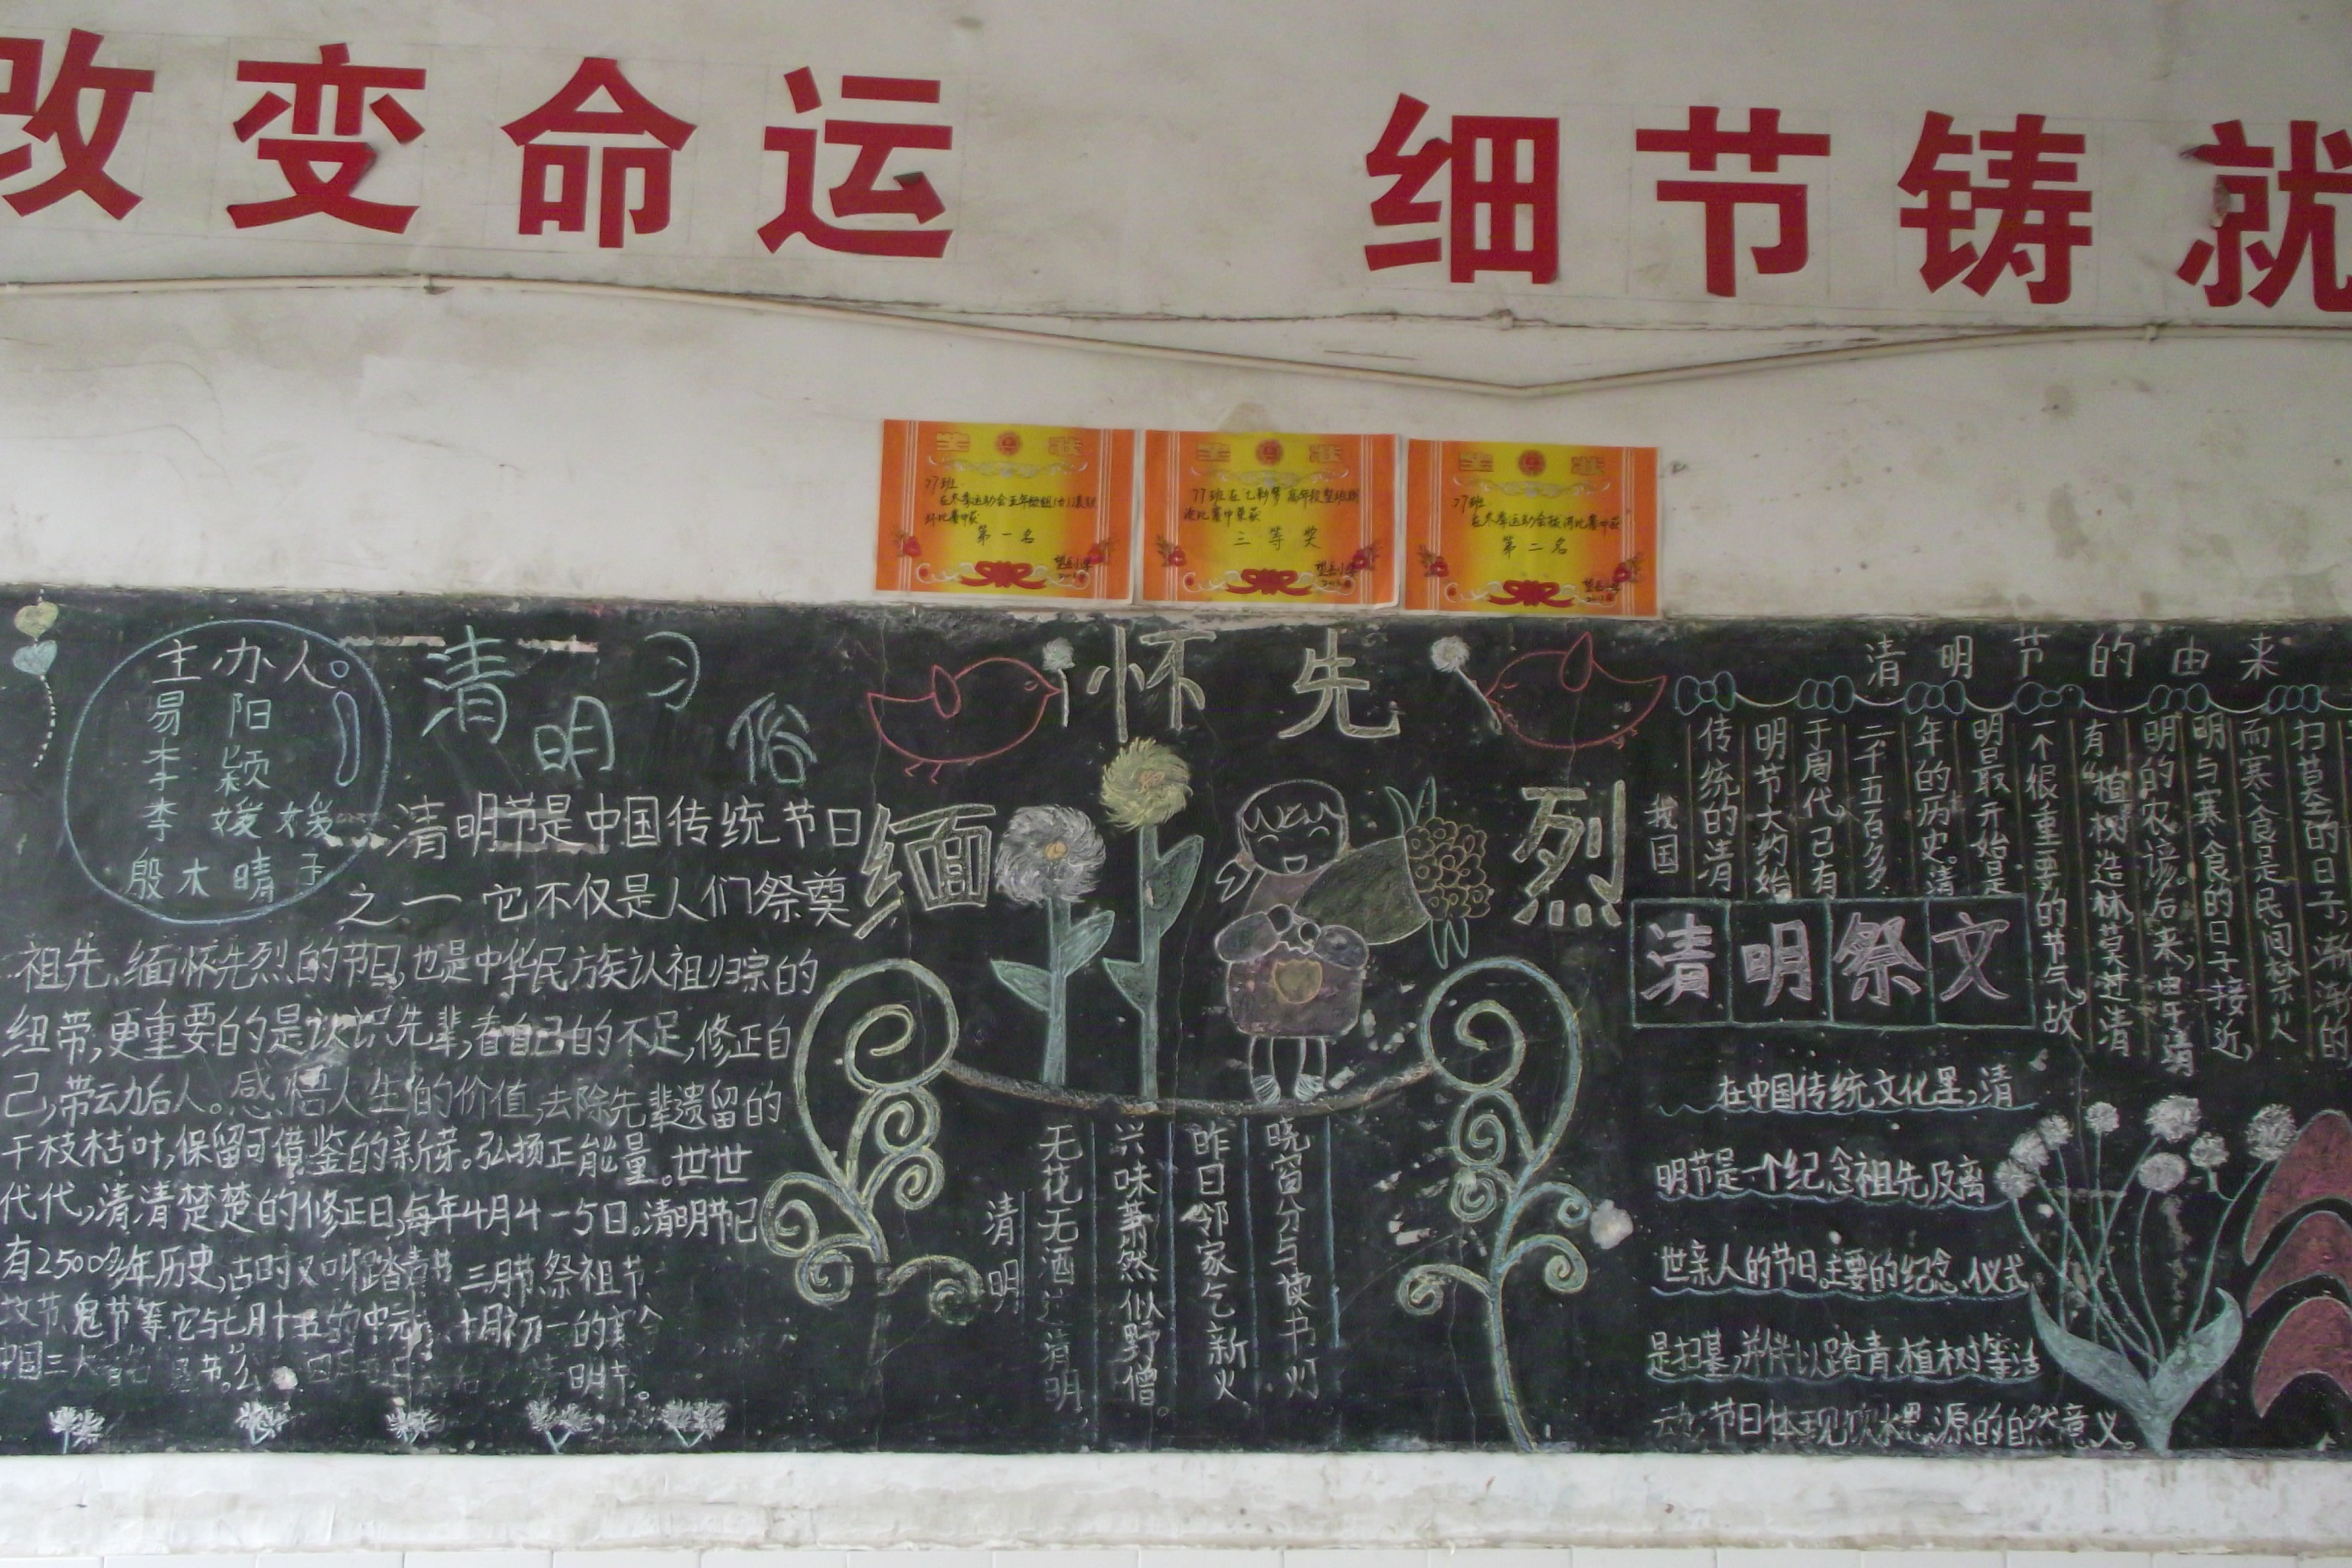 改变命运 细节铸就
奖状
77班
在冬季运动会五年级组(女)滚铁
环比赛中获
第一名
奖状
高年段
比赛中荣获
三等奖
奖状
77班
在冬季运动会拔河比赛中获
第二名
主办人:
易阳
李颖
李媛媛
殷木晴子
清明习俗
清明节是中国传统节日
之一 它不仅是人们祭奠
祖先、缅怀先烈的节日,也是中华民族认祖归宗的
纽带,更重要的是认识先辈,看自己的不足,修正自
己,带动后人。感悟人生的价值,去除先辈遗留的
干枝枯叶,保留可借鉴的新芽。弘扬正能量。世世
代代,清清楚楚的修正日,每年4月4-5日。清明节已
有2500多年历史,古时又叫踏青节、三月节、祭祖节、
节、鬼节等,它与七月十五的中元 十月初一的
中国三大 节。 明节。
缅怀先烈
清明
无花无酒 清明,
兴味萧然似野僧。
昨日邻家乞新火
晓窗分与读书灯
清明节的由来
我国
传统的清
明节大约始
于周代,已有
二千五百多
年的历史。清
明最开始是
一个很重要的节气,故
有“植树造林,莫过清
明”的农谚。后来,由于清
明与寒食的日子接近,
而寒食是民间禁火
扫墓的日子,渐渐的
清明祭文
在中国传统文化里,清
明节是一个纪念祖先及离
世亲人的节日。主要的纪念仪式
是扫墓,并伴以踏青、植树等活
动,节日体现饮水思源的自然意义。